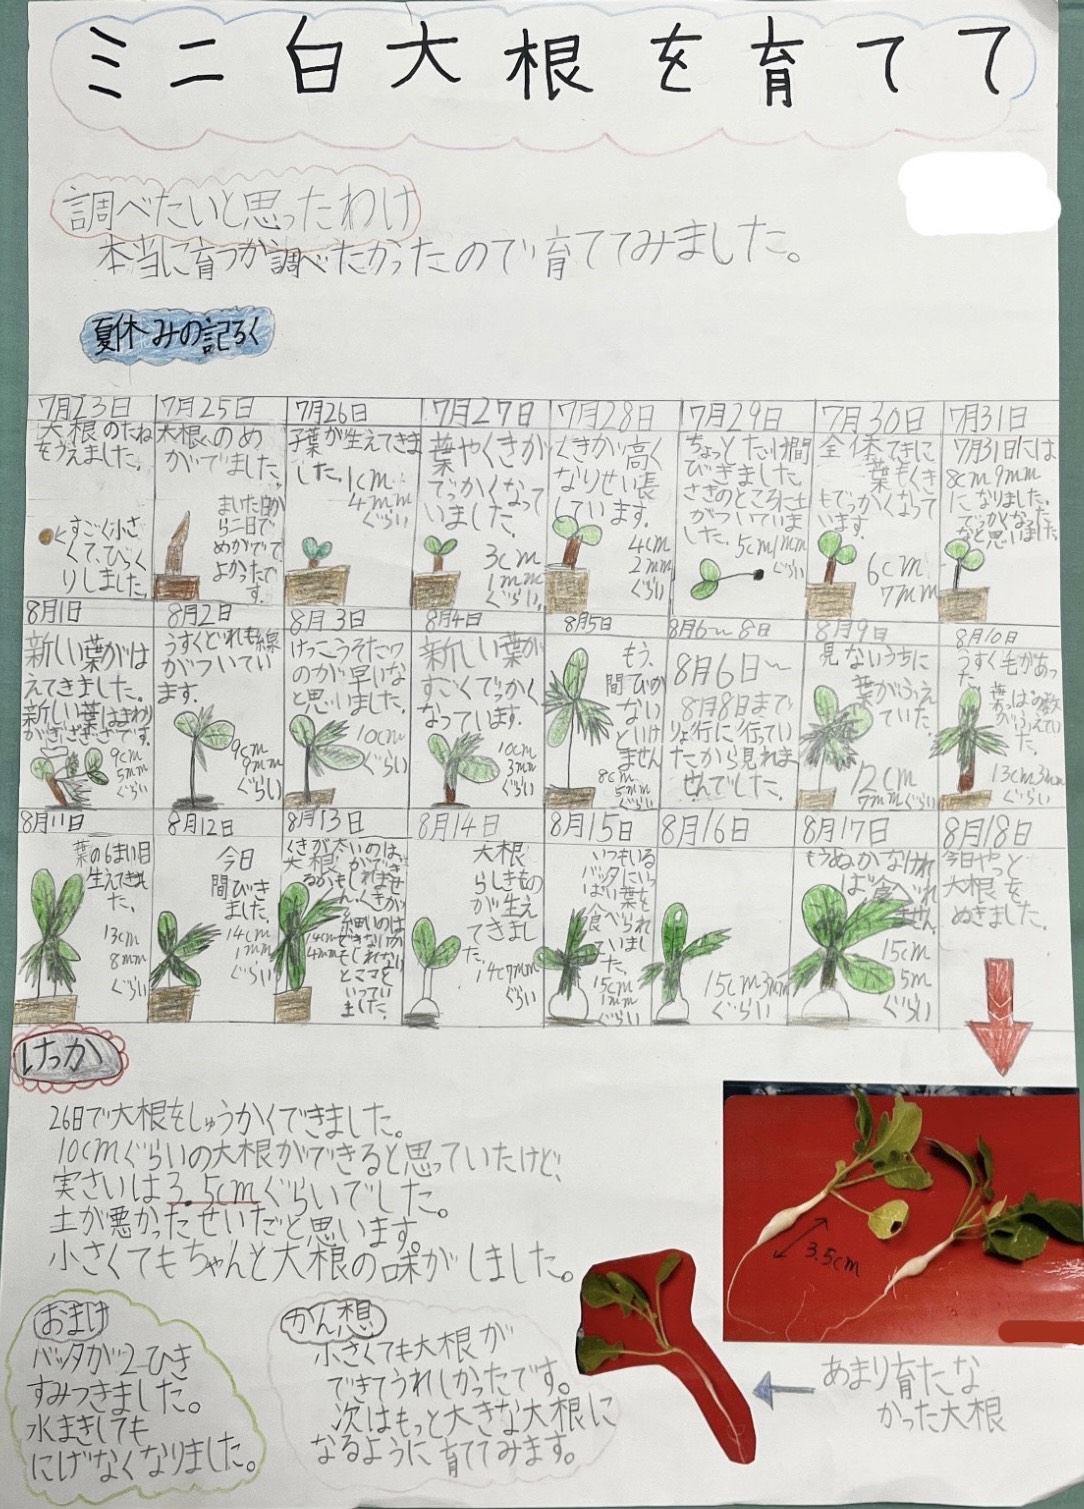 ミニ白大根を育てて
調べたいと思ったわけ
本当に育つか調べたかったので育ててみました。
夏休みの記ろく
7月23日
大根のたね
をうえました。
すごく小さ
くて、びっく
りしました。
7月25日
大根のめ
がでました。
まいた日か
ら二日で
めがでて
よかったで
す。
7月26日
子葉が生えてきま
した。
1cm
4mm
ぐらい
7月27日
葉やくきが
でっかくなって
いました。
3cm
1mm
ぐらい。
7月28日
くきが高く
なりせい長
しています。
4cm
2mm
ぐらい
7月29日
ちょっとだけ間
びきました。
さきのところに土
がついていま
した。
5cm1mm
ぐらい
7月30日
全体てきに
葉もくき
もでっかくなって
います。
6cm
7mm
7月31日
7月31日には
8cm9mm
になりました。
でっかくなった
なと思いました。
8月1日
新しい葉がは
えてきました。
新しい葉はまわり
がぎざぎざです。
9cm
5mm
ぐらい
8月2日
うすくどれも線
がついてい
ます。
9cm
9mm
ぐらい
8月3日
けっこうそだつ
のが早いな
と思いました。
10cm
ぐらい
8月4日
新しい葉が
すごくでっかく
なっています。
10cm
3mm
ぐらい
8月5日
もう、
間びか
ない
といけ
ません
8cm
5mm
ぐらい
8月6〜8日
8月6日〜
8月8日まで
りょ行に行ってい
たから見れま
せんでした。
8月9日
見ないうちに
葉がふえ
ていた。
12cm
7mmぐらい
8月10日
うすく毛があっ
た。
葉っぱの数
がふえてい
た。
13cm3mm
ぐらい
8月11日
葉の6まい目
生えてきた
た。
13cm
8mm
ぐらい
8月12日
今日
間びき
ました。
14cm
1mm
ぐらい
8月13日
14cm
4mm
8月14日
大根
らしきもの
が生え
てきまし
た。
14cm7mm
ぐらい
8月15日
いつもいる
バッタにいっ
ぱい葉を
食べられ
ていまし
た。
15cm
1mm
ぐらい
8月16日
15cm3mm
ぐらい
8月17日
もうぬかなけれ
ば食べれ
ません。
15cm
5m
ぐらい
8月18日
今日やっと
大根を
ぬきました。
けっか
26日で大根をしゅうかくできました。
10cmぐらいの大根ができると思っていたけど、
実さいは3.5cmぐらいでした。
土が悪かったせいだと思います。
小さくてもちゃんと大根の味がしました。
3.5cm
おまけ
バッタが2ひき
すみつきました。
水まきしても
にげなくなりました。
かん想
小さくても大根が
できてうれしかったです。
次はもっと大きな大根に
なるように育ててみます。
あまり育たな
かった大根